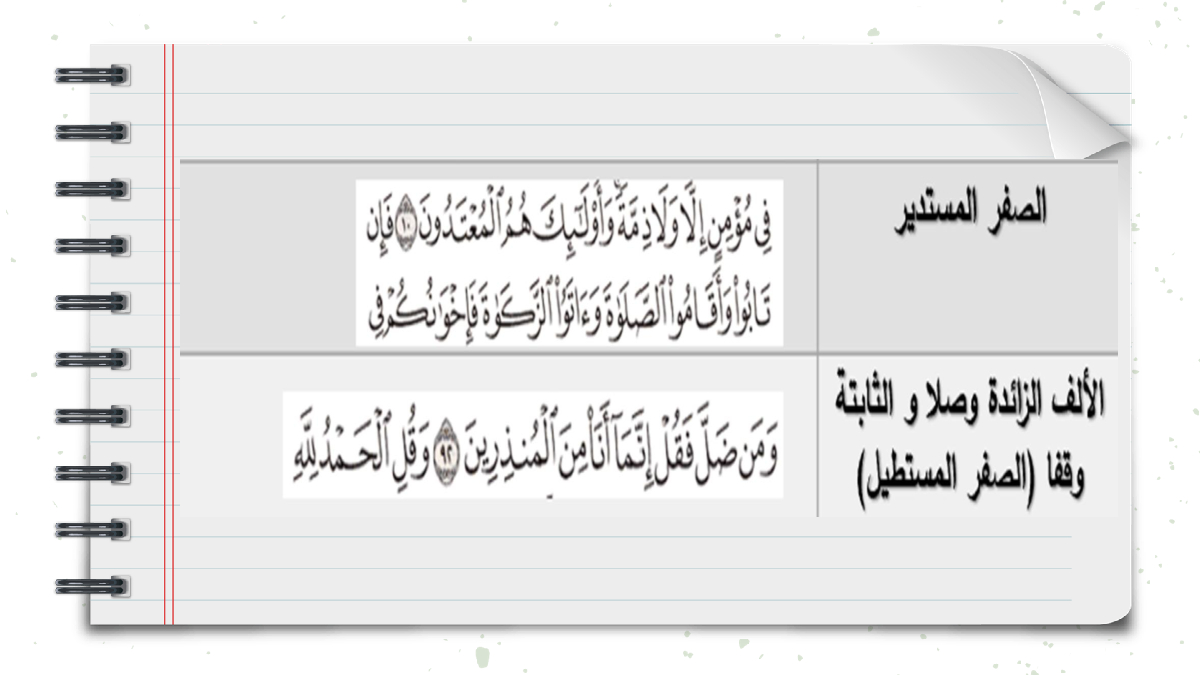 الصفر المستدير
فِى مُؤْمِنٍ إِلًّا وَلَا ذِمَّةً ۚ وَأُو۟لَـٰٓئِكَ هُمُ ٱلْمُعْتَدُونَ ١٠ فَإِن
تَابُوا۟ وَأَقَامُوا۟ ٱلصَّلَوٰةَ وَءَاتَوُا۟ ٱلزَّكَوٰةَ فَإِخْوَٰنُكُمْ فِى
الألف الزائدة وصلا و الثابتة
وقفا (الصفر المستطيل)
وَمَن ضَلَّ فَقُلْ إِنَّمَآ أَنَا۠ مِنَ ٱلْمُنذِرِينَ ٩٢ وَقُلِ ٱلْحَمْدُ لِلَّهِ